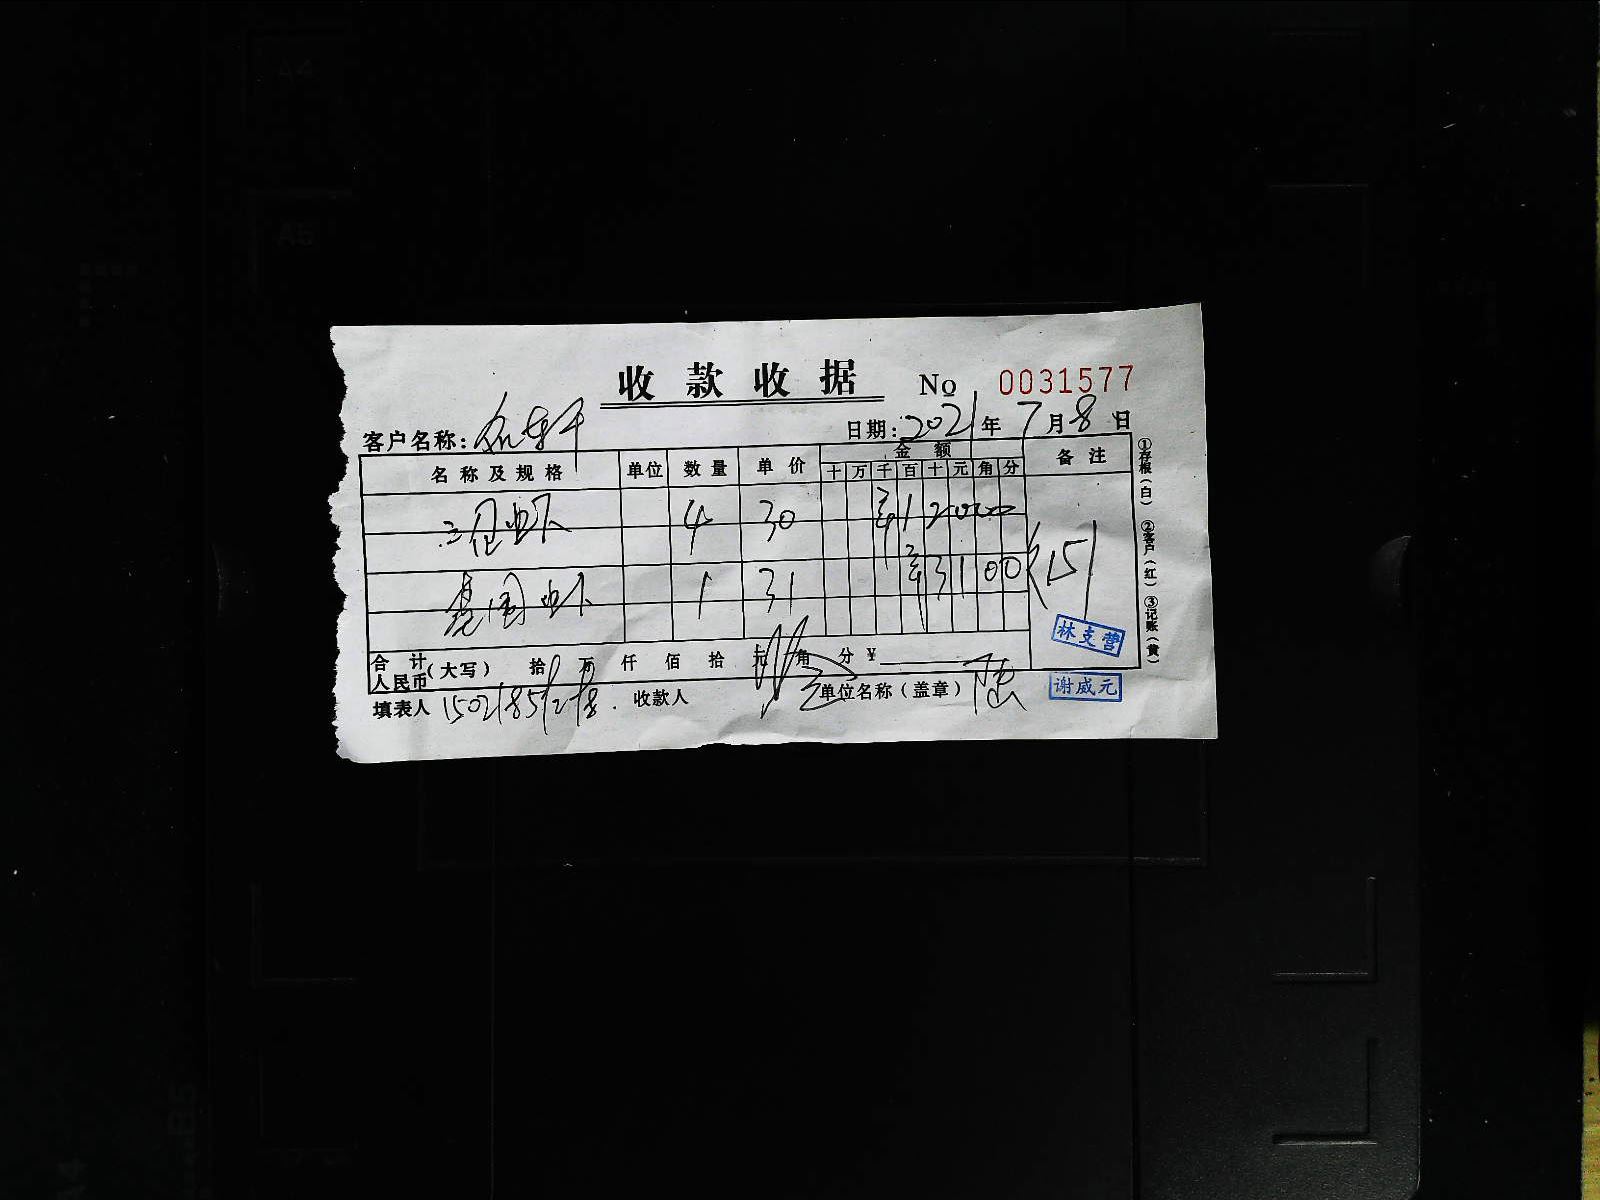 收款收据 No 0031577
客户名称: 日期: 2021年7月8日
名称及规格 单位 数量 单价 金额 备注
十 万 千 百 十 元 角 分
虾 4 30 ¥12000
基围虾 1 31 ¥3100
151
林支营
合计人民币(大写) 拾 万 仟 佰 拾 元 角 分 ¥
填表人 收款人 单位名称(盖章) 谢威元
①存根(白) ②客户(红) ③记账(黄)